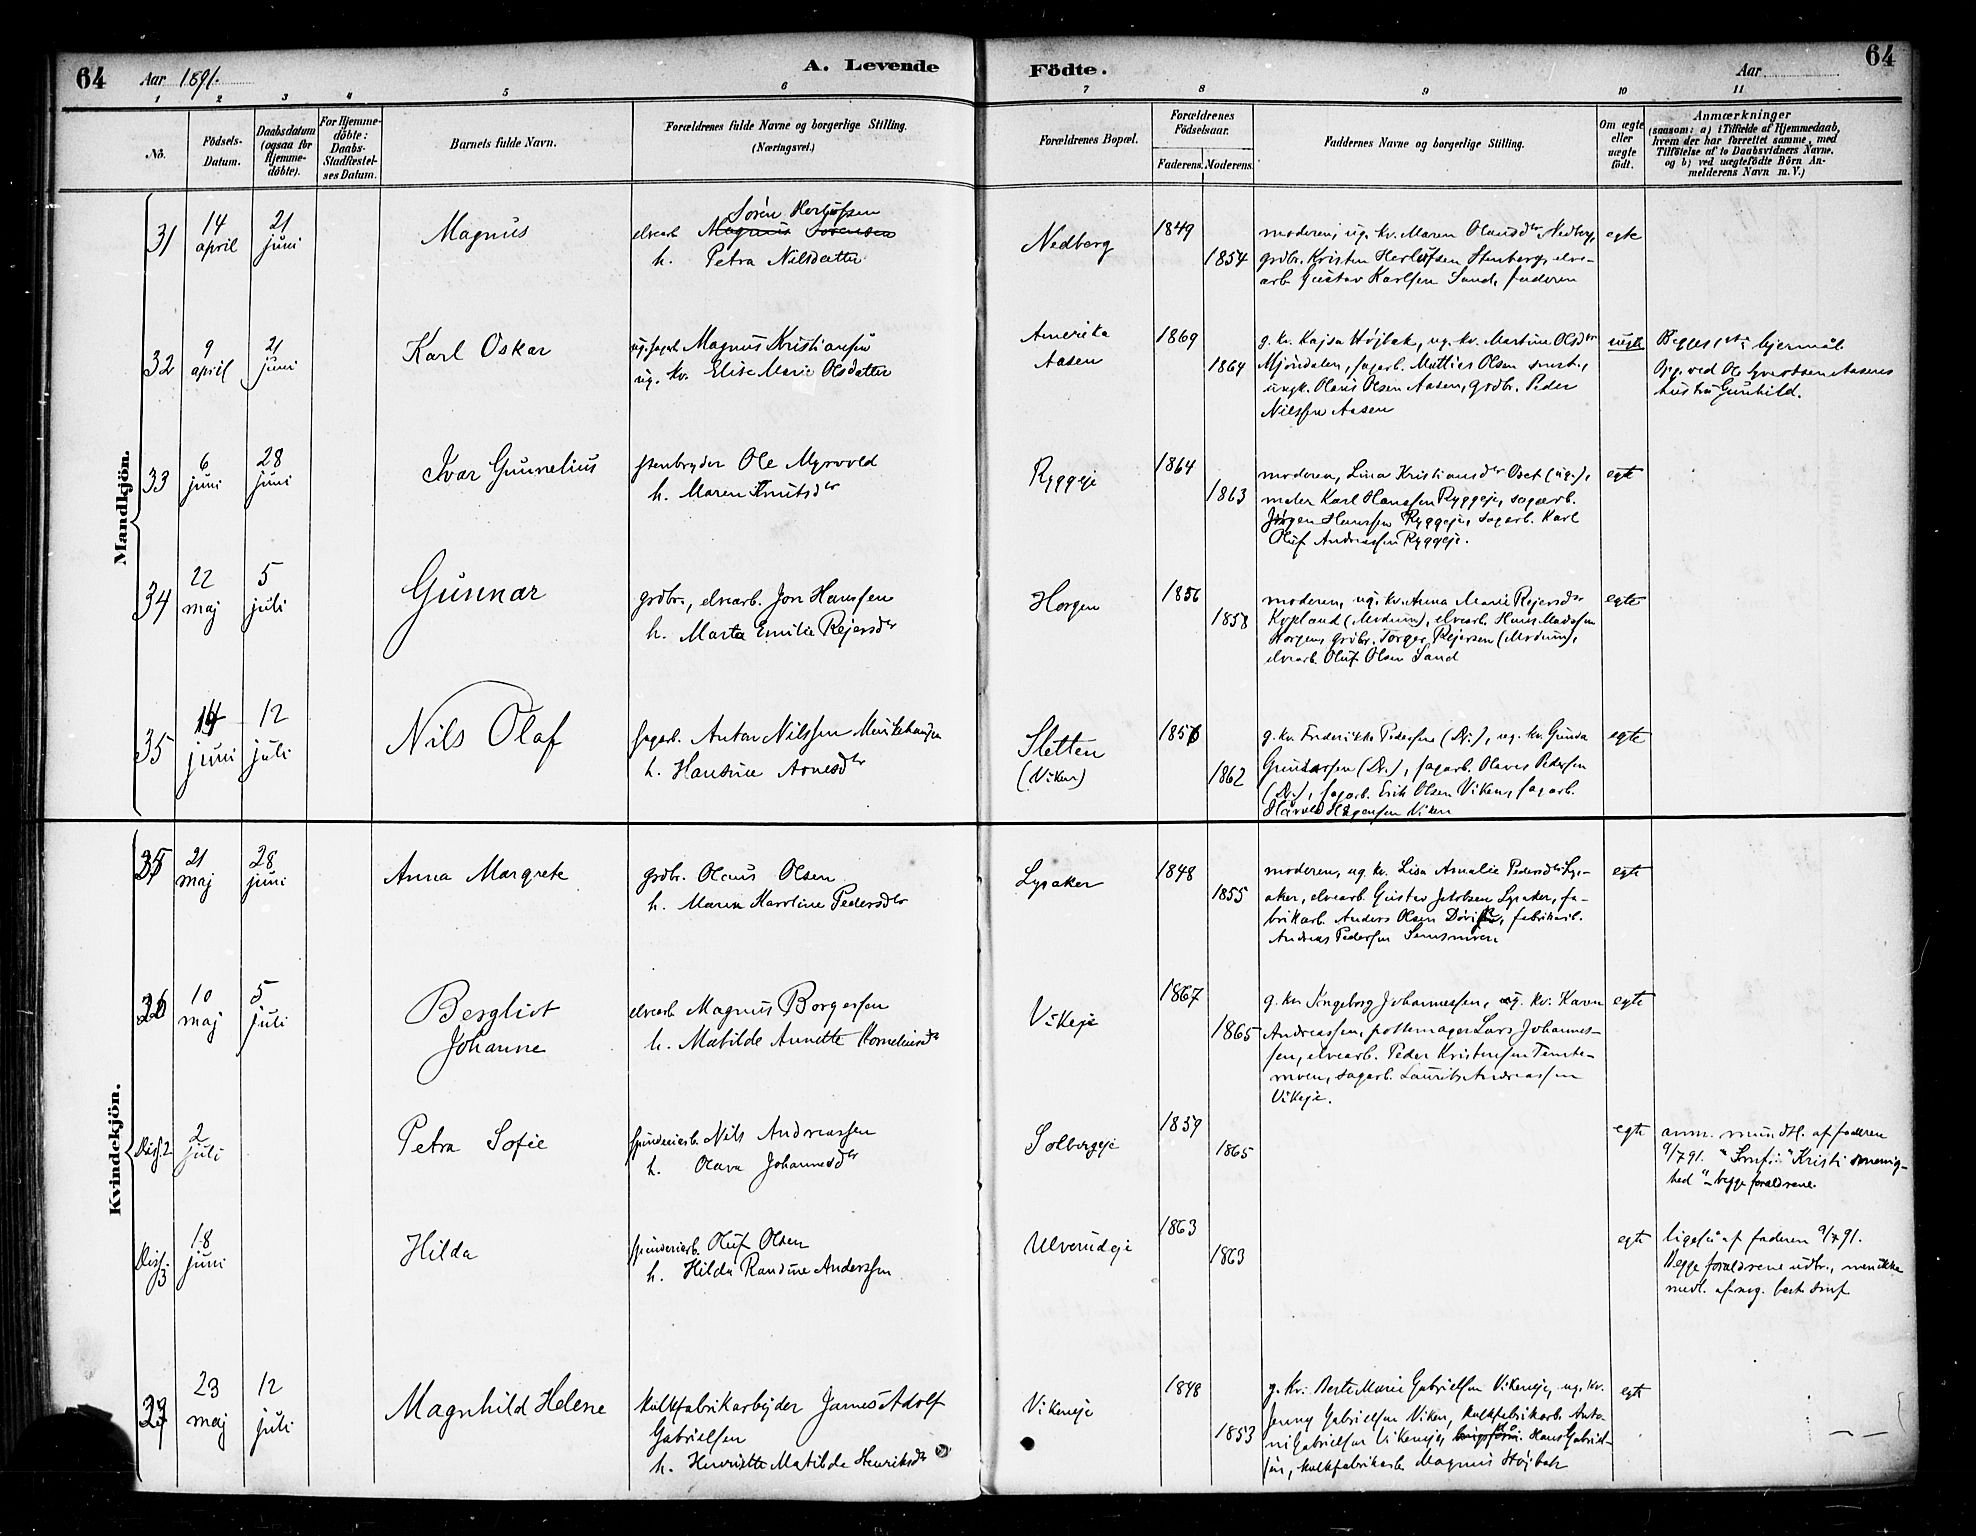 64
Aar 1891.
A. Levende
Födte.
Aar
64
1 2 3 4 5 6 7 8 9 10 11
No.
Födsels-
Datum.
Daabsdatum
(ogsaa for
Hjemme-
döbte).
For Hjemme-
döbte:
Daabs-
Stadfæstel-
ses Datum.
Barnets fulde Navn.
Forældrenes fulde Navne og borgerlige Stilling.
(Næringsvei.)
Forældrenes Bopæl.
Forældrenes
Födselsaar.
Faderens. Moderens.
Faddernes Navne og borgerlige Stilling.
Om ægte
eller
uægte
födt.
Anmærkninger
(saasom: a) i Tilfælde af Hjemmedaab,
hvem der har forrettet samme, med
Tilföielse af to Daabsvidners Navne.
og b) ved uægtefödte Börn An-
melderens Navn m. V.)
Mandkjön.
31
14
april
21
juni
Magnus
Sørén Herlufsen
elvearb. Magnus Sørensen
h. Petra Nilsdatter
Nedberg
1849
1854
moderen, ug. kv. Maren Olausdtr Nedberg,
grdbr. Kristen Herlufsen Stenberg, elve-
arb. Gustav Karlsen Sand, faderen
egte
32
9
april
21
juni
Karl Oskar
ug. sagarb. Magnus Kristiansen
ug. kv. Elise Marie Olsdatter
Amerika
Aasen
1869
1864
g. kv. Kajsa Højbak, ug. kv. Martine Olsdtr
Mjøndalen, sagarb. Mattias Olsen smst.,
ungk. Olavis Olsen Aasen, grdbr. Peder
Nilssen Aasen
uegte
Begges 1ste lejermål
Opg. ved Ole Syvertsen Aasens
hustru Gunhild.
33
6
juni
28
juni
Ivar Gunnelius
stenbryder Ole Myrvold
h. Maren Knutsdtr
Ryggeje
1864
1863
moderen, Lina Kristiansdtr Oset (ug.),
maler Karl Hanssen Ryggeje, sagarb.
Jørgen Hanssen Ryggeje, sagarb. Karl
Oluf Andreassen Ryggeje.
egte
34
22
maj
5
juli
Gunnar
grdbr., elvearb. Jon Hanssen
h. Marta Emilie Rejersdtr
Horgen
1856
1858
moderen, ug. kv. Anna Marie Rejersdtr
(Modum), elvearb. Hans Madssen
Horgen, grdbr. Torger Rejersen (Modum),
elvearb. Oluf Olsen Sand
egte
35
14
juni
12
juli
Nils Olaf
sagarb. Anton Nilssen
h. Hansine Arnesdtr
Sletten
(Viken)
1856
1862
g. kv. Frederikke Pedersen (Dr.), ug. kv. Gunda
Gundersen (Dr.), sagarb. Olaves Pedersen
(Dr.), sagarb. Erik Olsen Viken, sagarb.
Harald Hagensen Viken
egte
Kvindekjön.
35
21
maj
28
juni
Anna Margrete
grdbr. Olaus Olsen
h. Maren Karoline Pedersdtr
Lysaker
1848
1855
moderen, ug. kv. Lisa Amalie Pedersdtr Lys-
aker, elvearb. Gustav Jakobsen Lysaker, fa-
brikarb. Anders Olsen, fabrikarb.
Andreas Pedersen
egte
36
10
maj
5
juli
Bergliot
Johanne
elvearb. Magnus Borgersen
h. Matilde Annette Korneliusdtr
Vikeje
1867
1865
g. kv. Ingeborg Johannessen, ug. kv. Karen
Andreassen, pottemager Lars Johannes-
sen, elvearb. Peder Kristensen Temte-
moen, sagarb. Laurits Andreassen
Vikeje.
egte
Diss. 2
2
juli
Petra Sofie
spinderiarb. Nils Andreassen
h. Olava Johannesdtr
Solbergeje
1859
1865
egte
anm. mundtl. af faderen
9/7 91. "Smf.: "Kristi menig-
hed" – begge forældrene.
Diss.
3
18
juni
Hilda
spinderiarb. Oluf Olsen
h. Hilda Randine Anderssen
Ulverudeje
1863
1863
egte
ligeså af faderen 9/7 91.
Begge forældrene udtr., men ikke
medl. af nog. best. smf
37
23
maj
12
juli
Magnhild Helene
kalkfabrikarbejder James Adolf
Gabrielsen
h. Henriette Matilde Henriksdtr
Vikeneje
1848
1853
g. kv. Berte Marie Gabrielsen Vikeneje, ug. kv.
Jenny Gabrielsen Viken, kalkfabrikarb. Anto-
ni Gabrielsen Vikeneje, Hans Gabriel-
sen, kalkfabrikarb. Magnus Højbak
egte